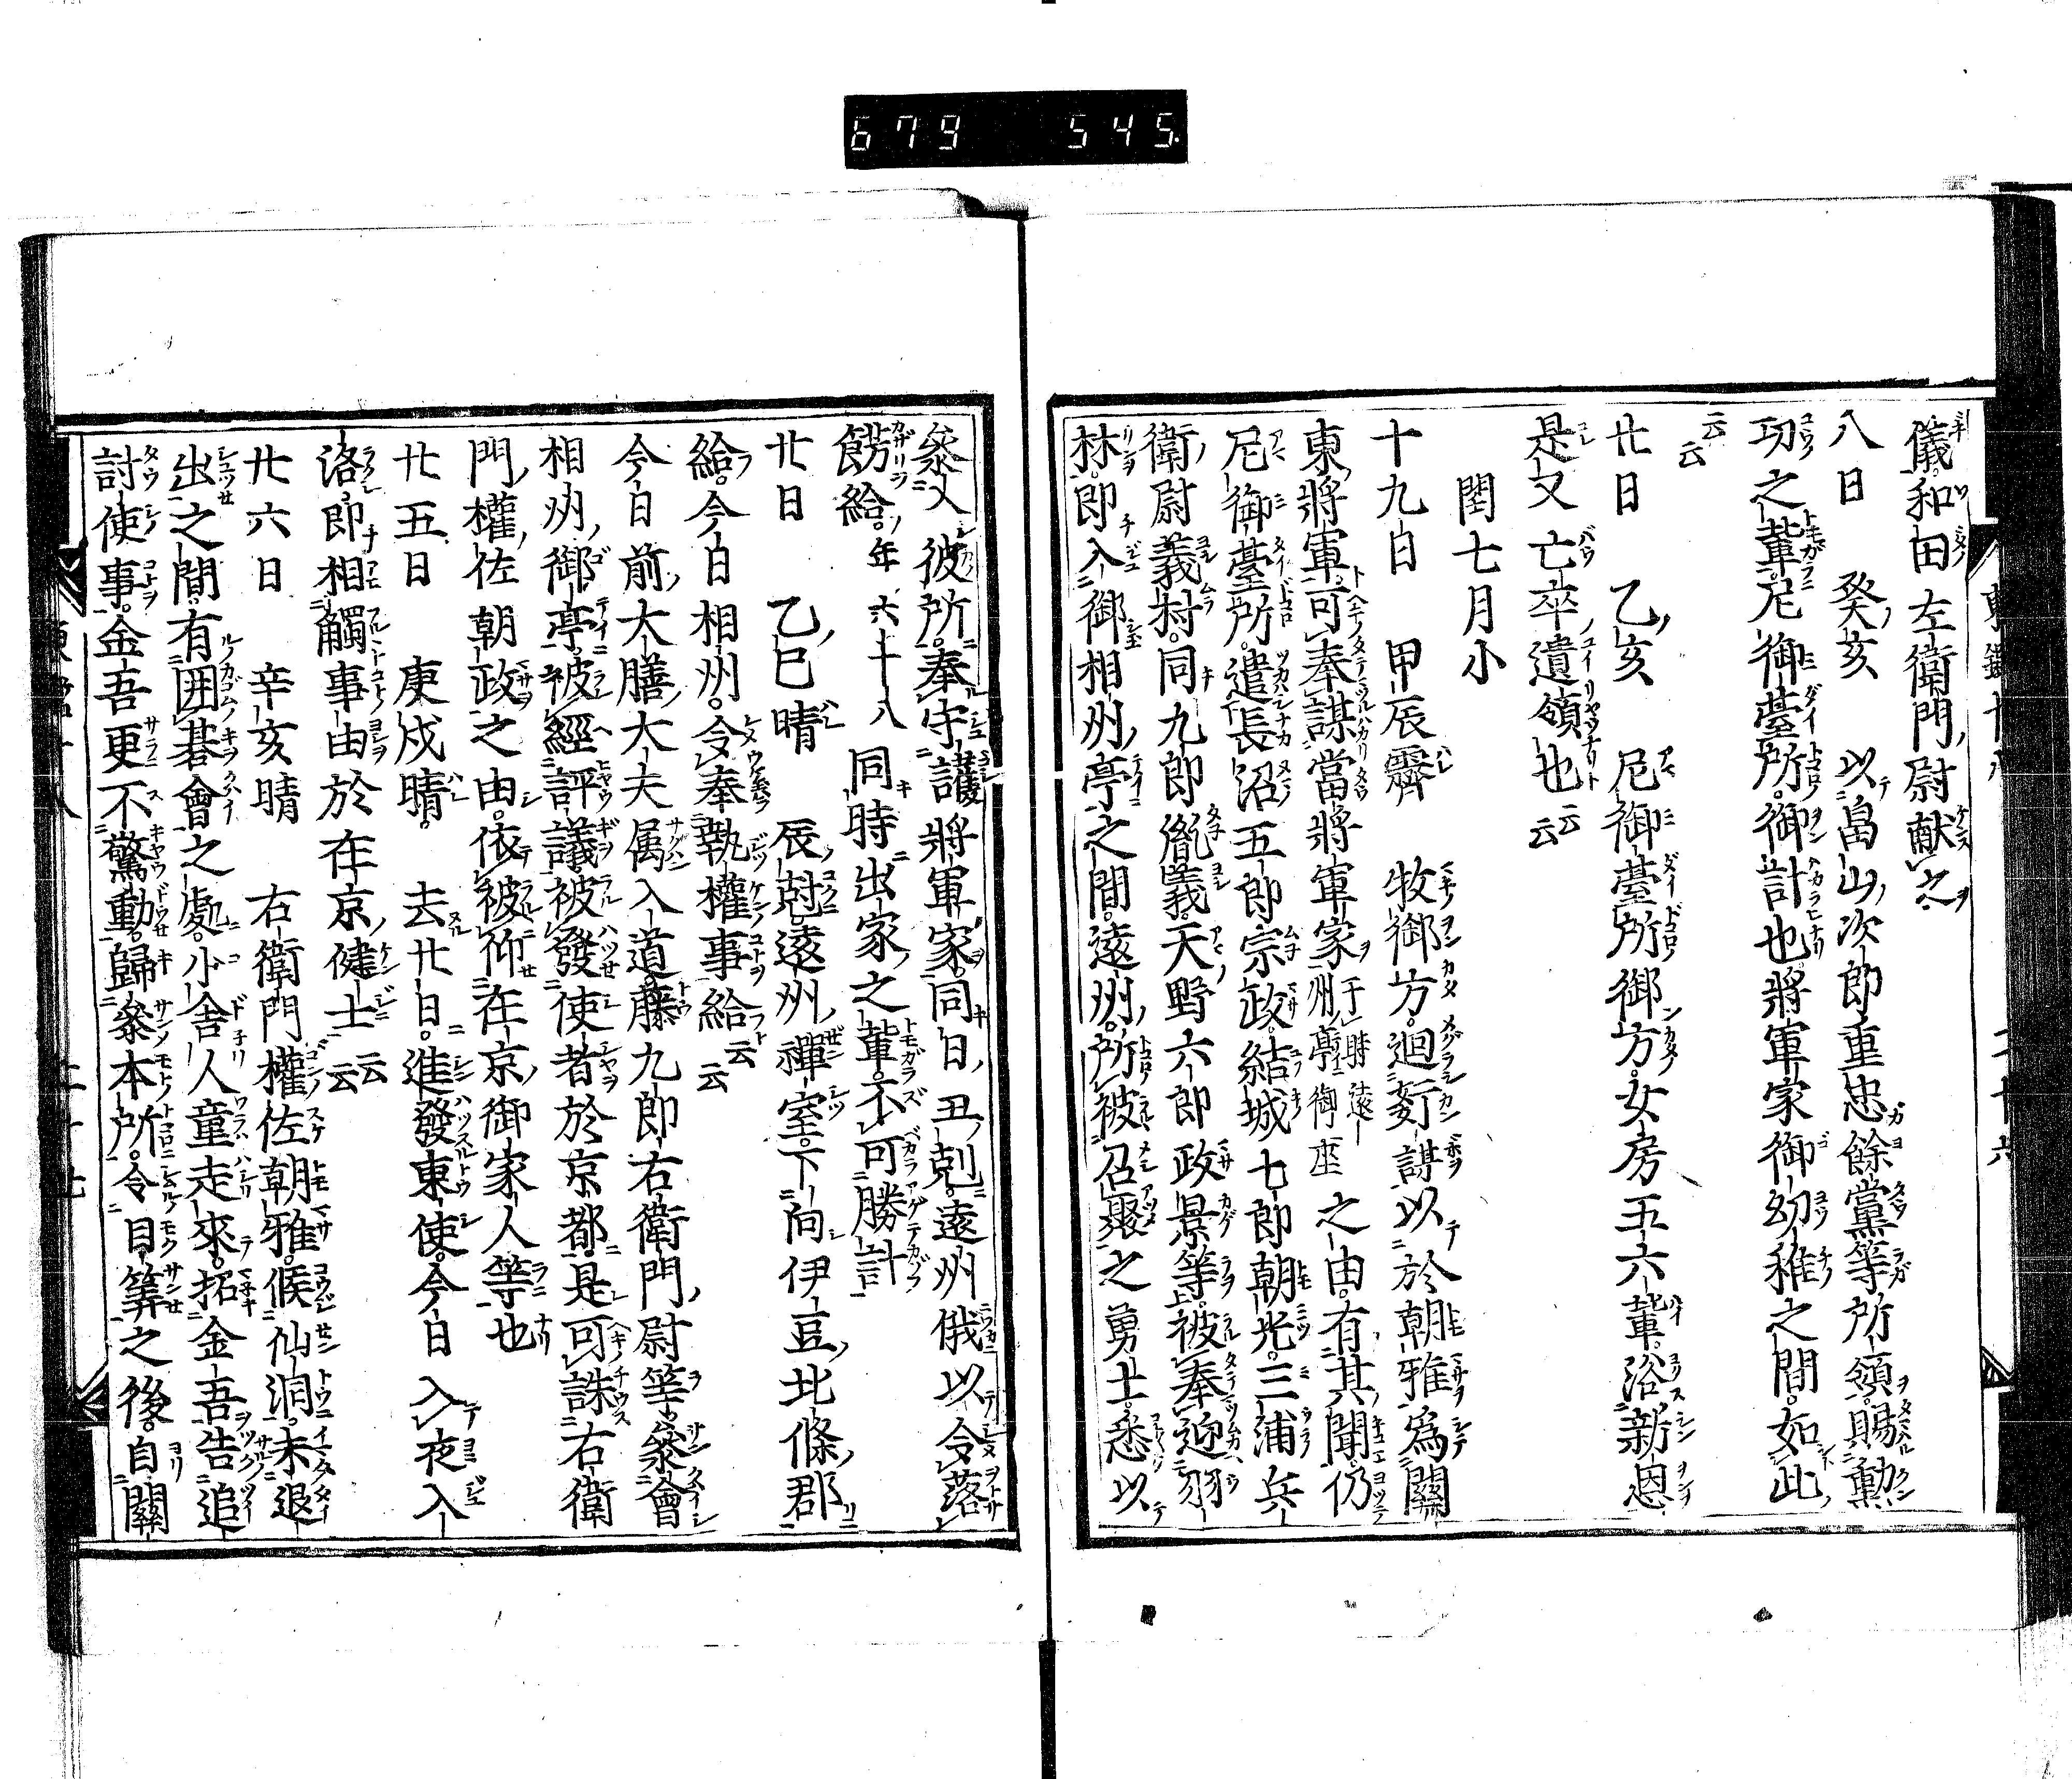 679 545.
儀。和田左衛門尉献之。
八日 癸亥 以畠山次郎重忠餘黨等所領。賜勳
功之輩。尼御臺所。御計也。將軍家御幼稚之間。如此
云云
廿日 乙亥 尼御臺所御方。女房五六輩。浴新恩
是又亡卒遺領也云云
閏七月小
十九日 甲辰霽 牧御方。迴姧謀。以於朝雅爲關
東將軍。可奉謀當將軍家于時遠州亭御座之由。有其聞。仍
尼御臺所。遣長沼五郎宗政。結城七郎朝光。三浦兵
衛尉義村。同九郎胤義。天野六郎政景等。被奉迎羽
林。即入御相州亭之間。遠州。所被召聚之勇士。悉以
參入彼所。奉守護將軍家。同日丑剋遠州俄以令落
餝給。年六十八同時出家之輩。不可勝計
廿日 乙巳晴 辰剋。遠州禪室。下向伊豆北條郡
給。今日相州。令奉執權事給云云
今日前大膳大夫属入道藤九郎右衛門尉等。參會
相州御亭。被經評議。被發使者於京都。是可誅右衛
門權佐朝政之由。依被仰在京御家人等也
廿五日 庚戌晴。 去廿日。進發東使。今日入夜入
洛。即相觸事由於在京健士云云
廿六日 辛亥晴 右衛門權佐朝雅。候仙洞。未退
出之間。有囲碁會之處。小舎人童走來。招金吾。告追
討使事。金吾更不驚動。歸參本所。令目筭之後。自關